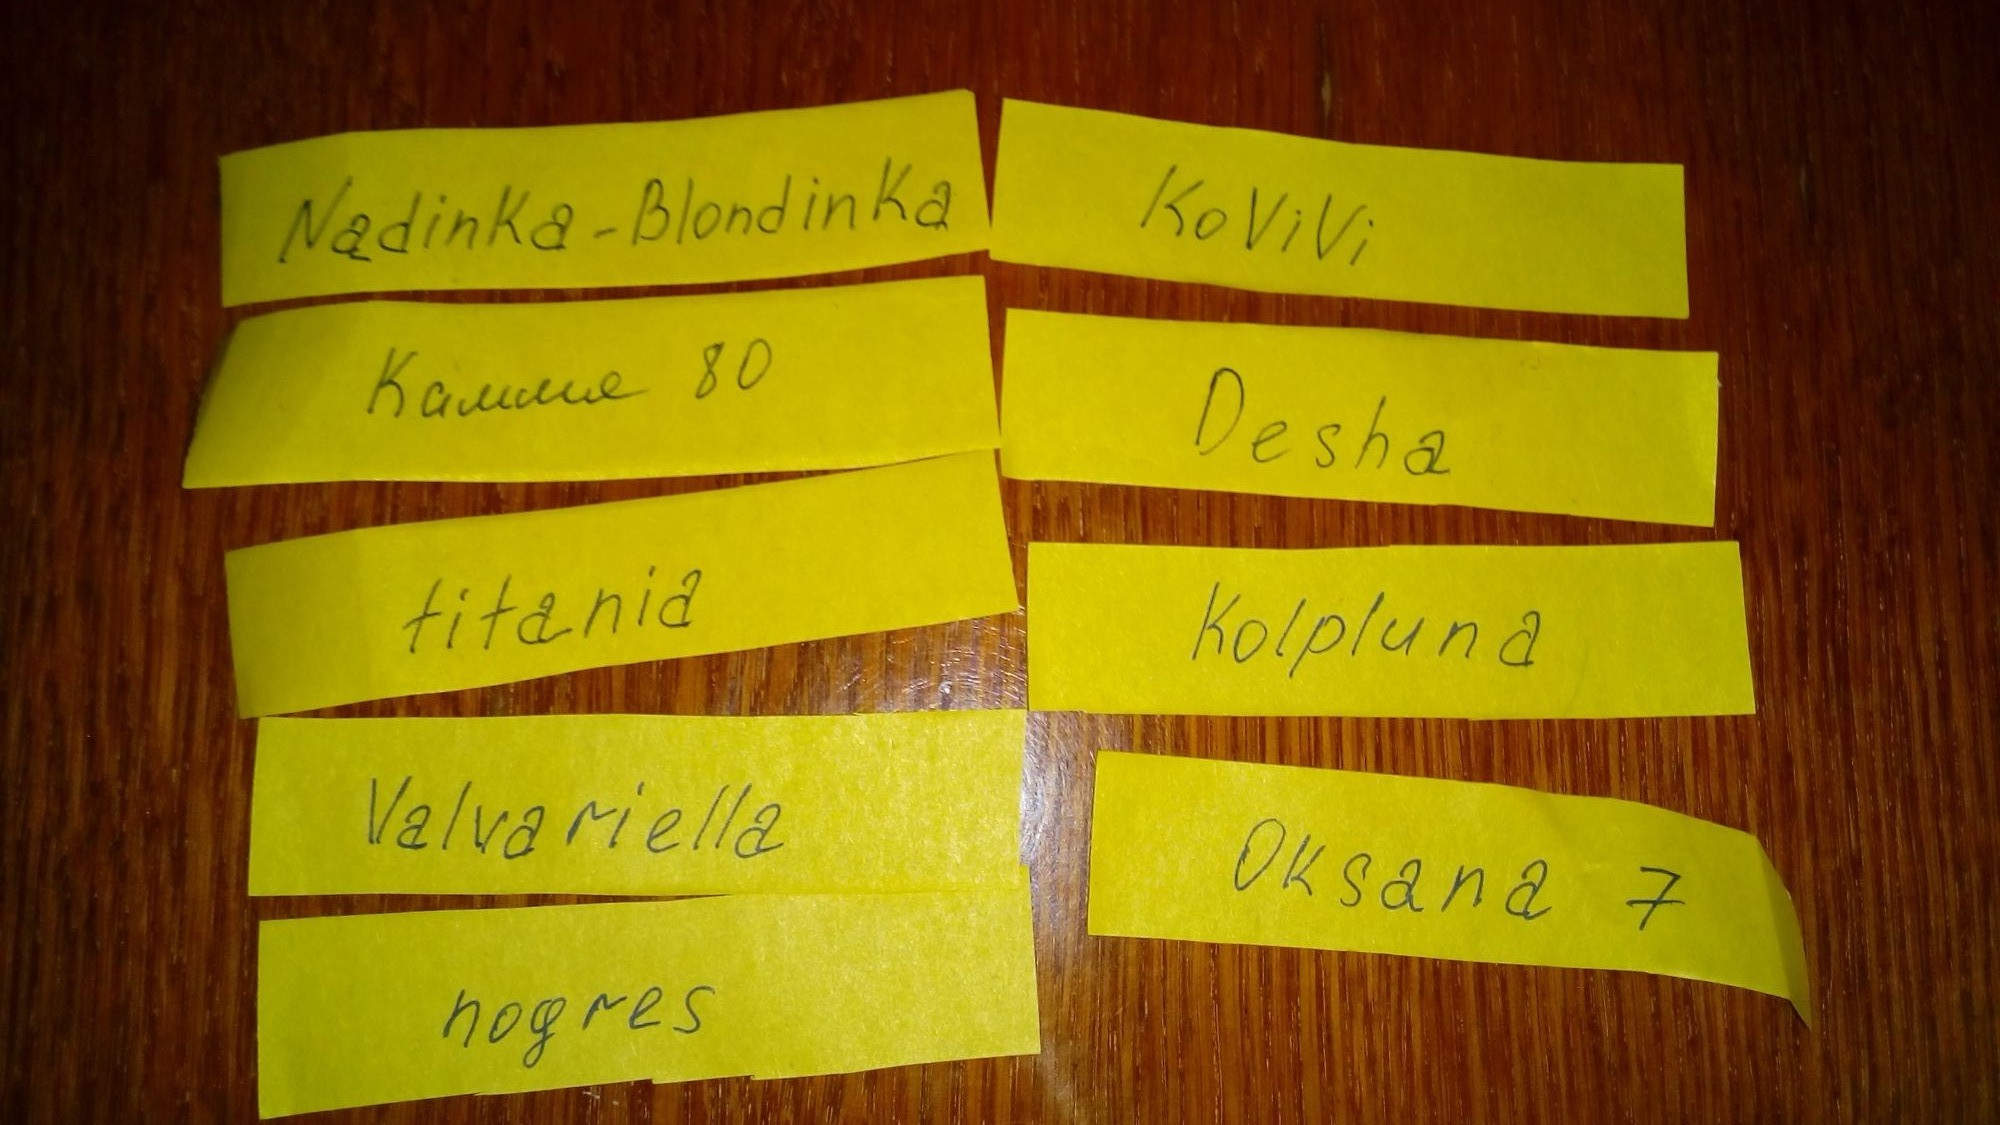 Nadinka-Blondinka
KoViVi
Камилле 80
Desha
titania
Kolpluna
Valvariella
Oksana 7
nogres